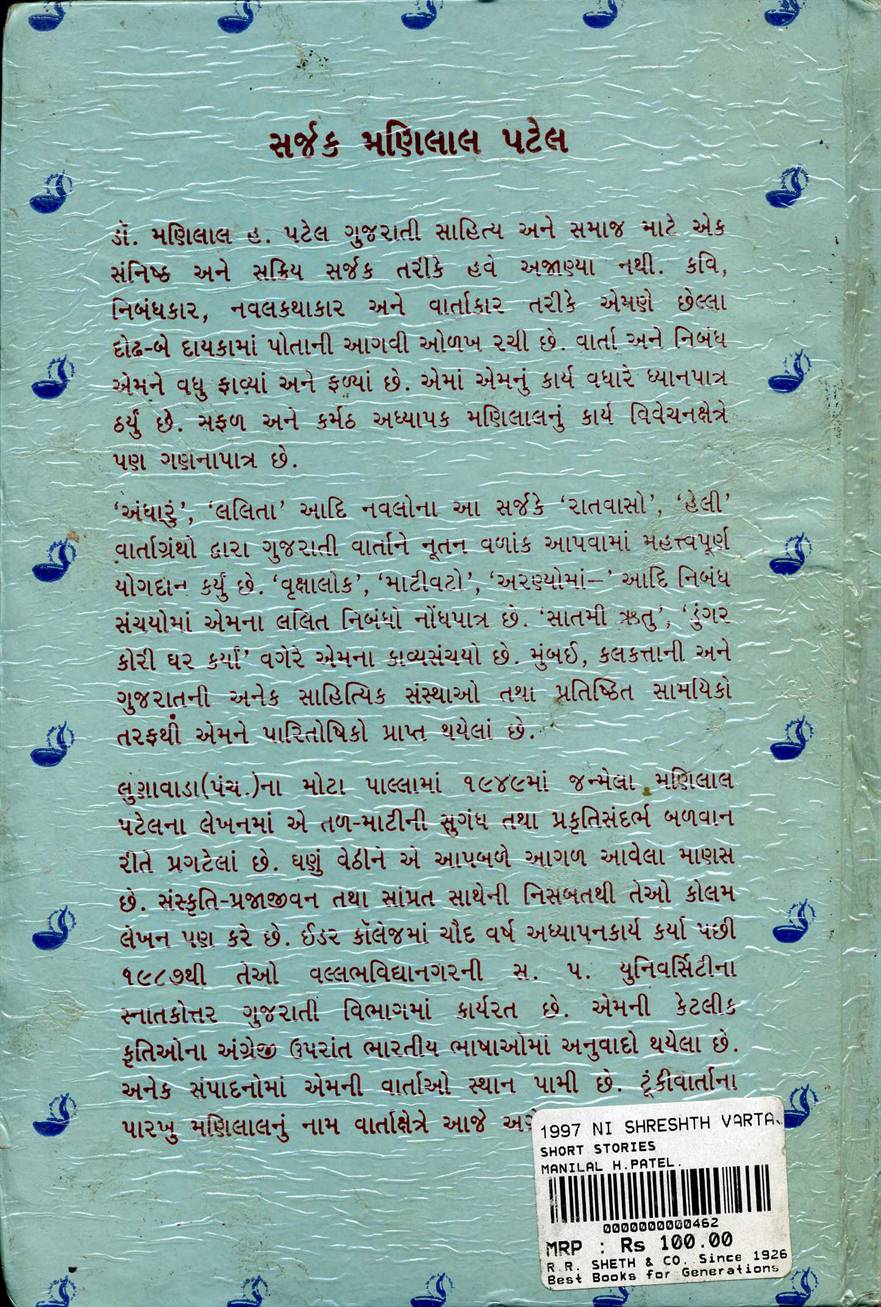 સર્જક મણિલાલ પટેલ
ડૉ. મણિલાલ હ. પટેલ ગુજરાતી સાહિત્ય અને સમાજ માટે એક
સંનિષ્ઠ અને સક્રિય સર્જક તરીકે હવે અજાણ્યા નથી. કવિ,
નિબંધકાર, નવલકથાકાર અને વાર્તાકાર તરીકે એમણે છેલ્લા
દોઢ-બે દાયકામાં પોતાની આગવી ઓળખ રચી છે. વાર્તા અને નિબંધ
એમને વધુ ફાવ્યાં અને ફળ્યાં છે. એમાં એમનું કાર્ય વધારે ધ્યાનપાત્ર
ઠર્યું છે. સફળ અને કર્મઠ અધ્યાપક મણિલાલનું કાર્ય વિવેચનક્ષેત્રે
પણ ગણનાપાત્ર છે.
‘અંધારું’, ‘લલિતા’ આદિ નવલોના આ સર્જકે ‘રાતવાસો’, ‘હેલી’
વાર્તાગ્રંથો દ્વારા ગુજરાતી વાર્તાને નૂતન વળાંક આપવામાં મહત્ત્વપૂર્ણ
યોગદાન કર્યું છે. ‘વૃક્ષાલોક’, ‘માટીવટો’, ‘અરણ્યોમાં–’ આદિ નિબંધ
સંચયોમાં એમના લલિત નિબંધો નોંધપાત્ર છે. ‘સાતમી ઋતુ’, ‘ડુંગર
કોરી ઘર કર્યાં’ વગેરે એમના કાવ્યસંચયો છે. મુંબઈ, કલકત્તાની અને
ગુજરાતની અનેક સાહિત્યિક સંસ્થાઓ તથા પ્રતિષ્ઠિત સામયિકો
તરફથી એમને પારિતોષિકો પ્રાપ્ત થયેલાં છે.
લુણાવાડા(પંચ.)ના મોટા પાલ્લામાં ૧૯૪૯માં જન્મેલા મણિલાલ
પટેલના લેખનમાં એ તળ-માટીની સુગંધ તથા પ્રકૃતિસંદર્ભ બળવાન
રીતે પ્રગટેલાં છે. ઘણું વેઠીને એ આપબળે આગળ આવેલા માણસ
છે. સંસ્કૃતિ-પ્રજાજીવન તથા સાંપ્રત સાથેની નિસબતથી તેઓ કોલમ
લેખન પણ કરે છે. ઈડર કૉલેજમાં ચૌદ વર્ષ અધ્યાપનકાર્ય કર્યા પછી
૧૯૮૭થી તેઓ વલ્લભવિદ્યાનગરની સ. પ. યુનિવર્સિટીના
સ્નાતકોત્તર ગુજરાતી વિભાગમાં કાર્યરત છે. એમની કેટલીક
કૃતિઓના અંગ્રેજી ઉપરાંત ભારતીય ભાષાઓમાં અનુવાદો થયેલા છે.
અનેક સંપાદનોમાં એમની વાર્તાઓ સ્થાન પામી છે. ટૂંકીવાર્તાના
પારખુ મણિલાલનું નામ વાર્તાક્ષેત્રે આજે
1997 NI SHRESHTH VARTA
SHORT STORIES
MANILAL H.PATEL.
0000000000462
MRP : Rs 100.00
R.R. SHETH & CO. Since 1926
Best Books for Generations